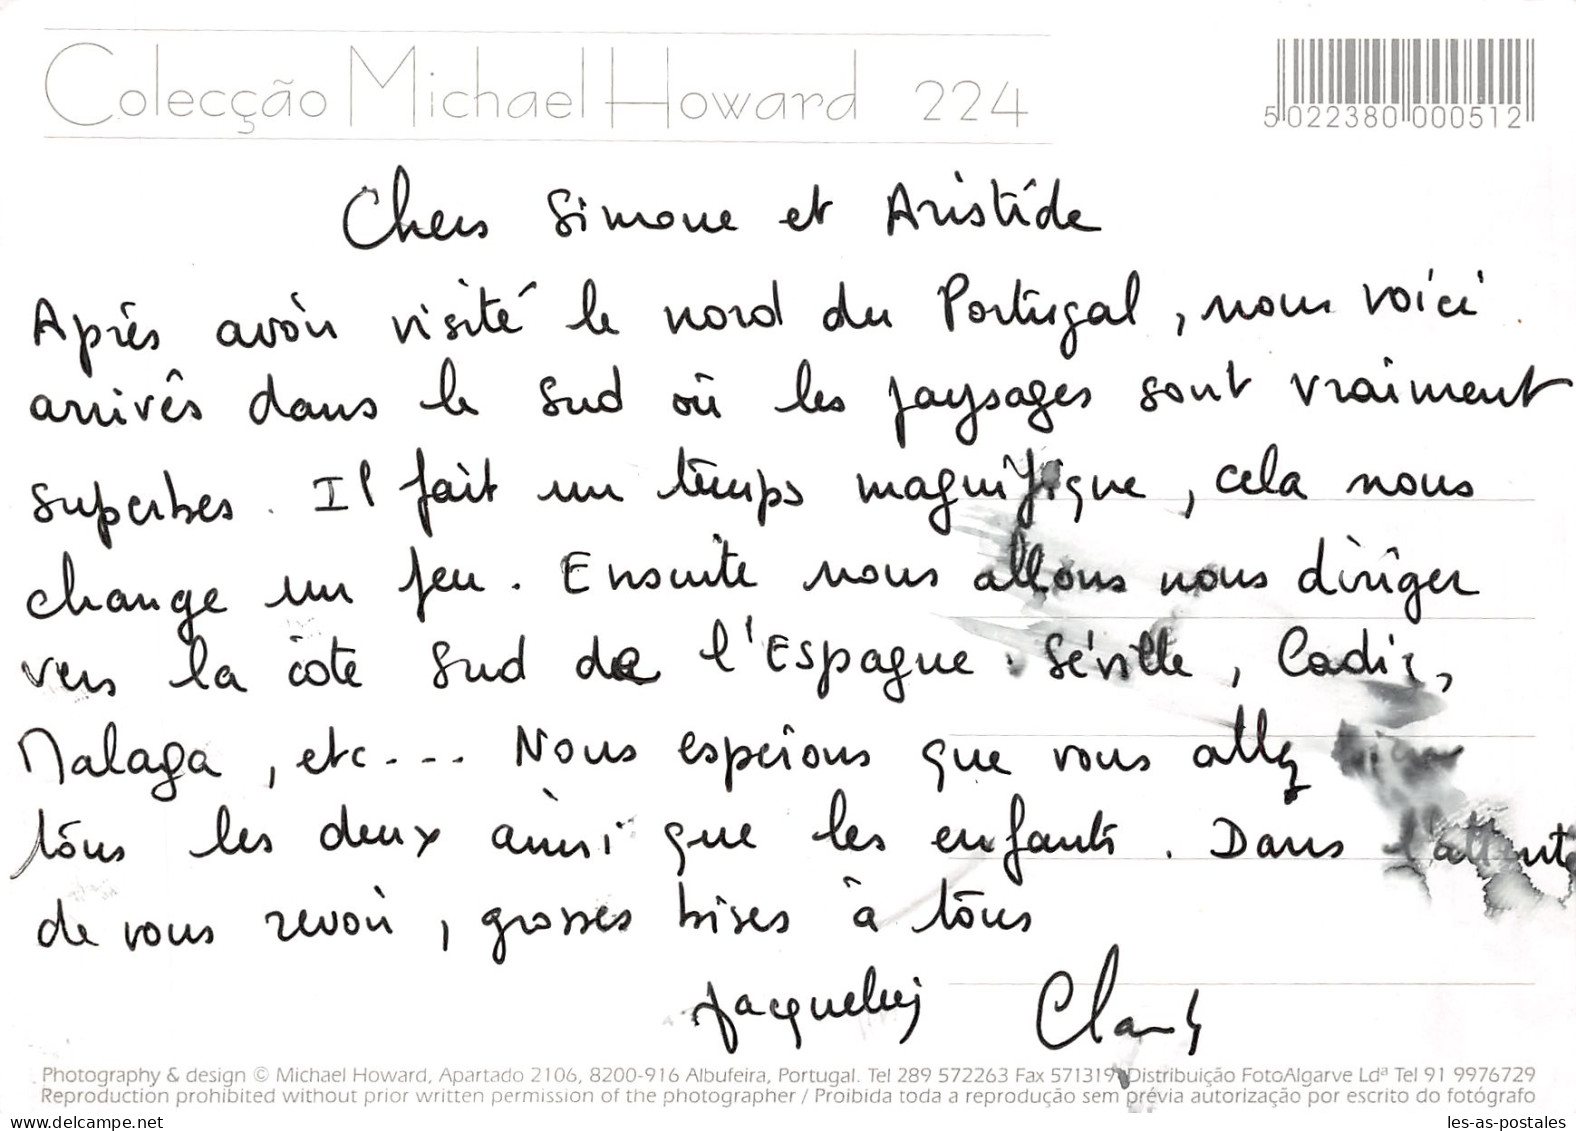 Colecção Michael Howard 224
5 022380 000512
Chers Simone et Aristide
Après avoir visité le nord du Portugal, nous voici
arrivés dans le sud où les paysages sont vraiment
superbes. Il fait un temps magnifique, cela nous
change un peu. Ensuite nous allons nous diriger
vers la côte sud de l'Espagne : Séville, Cadiz,
Malaga, etc... Nous espérons que vous allez bien
tous les deux ainsi que les enfants. Dans l'attente
de vous revoir, grosses bises à tous
Photography & design © Michael Howard, Apartado 2106, 8200-916 Albufeira, Portugal. Tel 289 572263 Fax 571319 Distribuição FotoAlgarve Ldª Tel 91 9976729
Reproduction prohibited without prior written permission of the photographer / Proibida toda a reprodução sem prévia autorização por escrito do fotógrafo
delcampe.net
les-as-postales